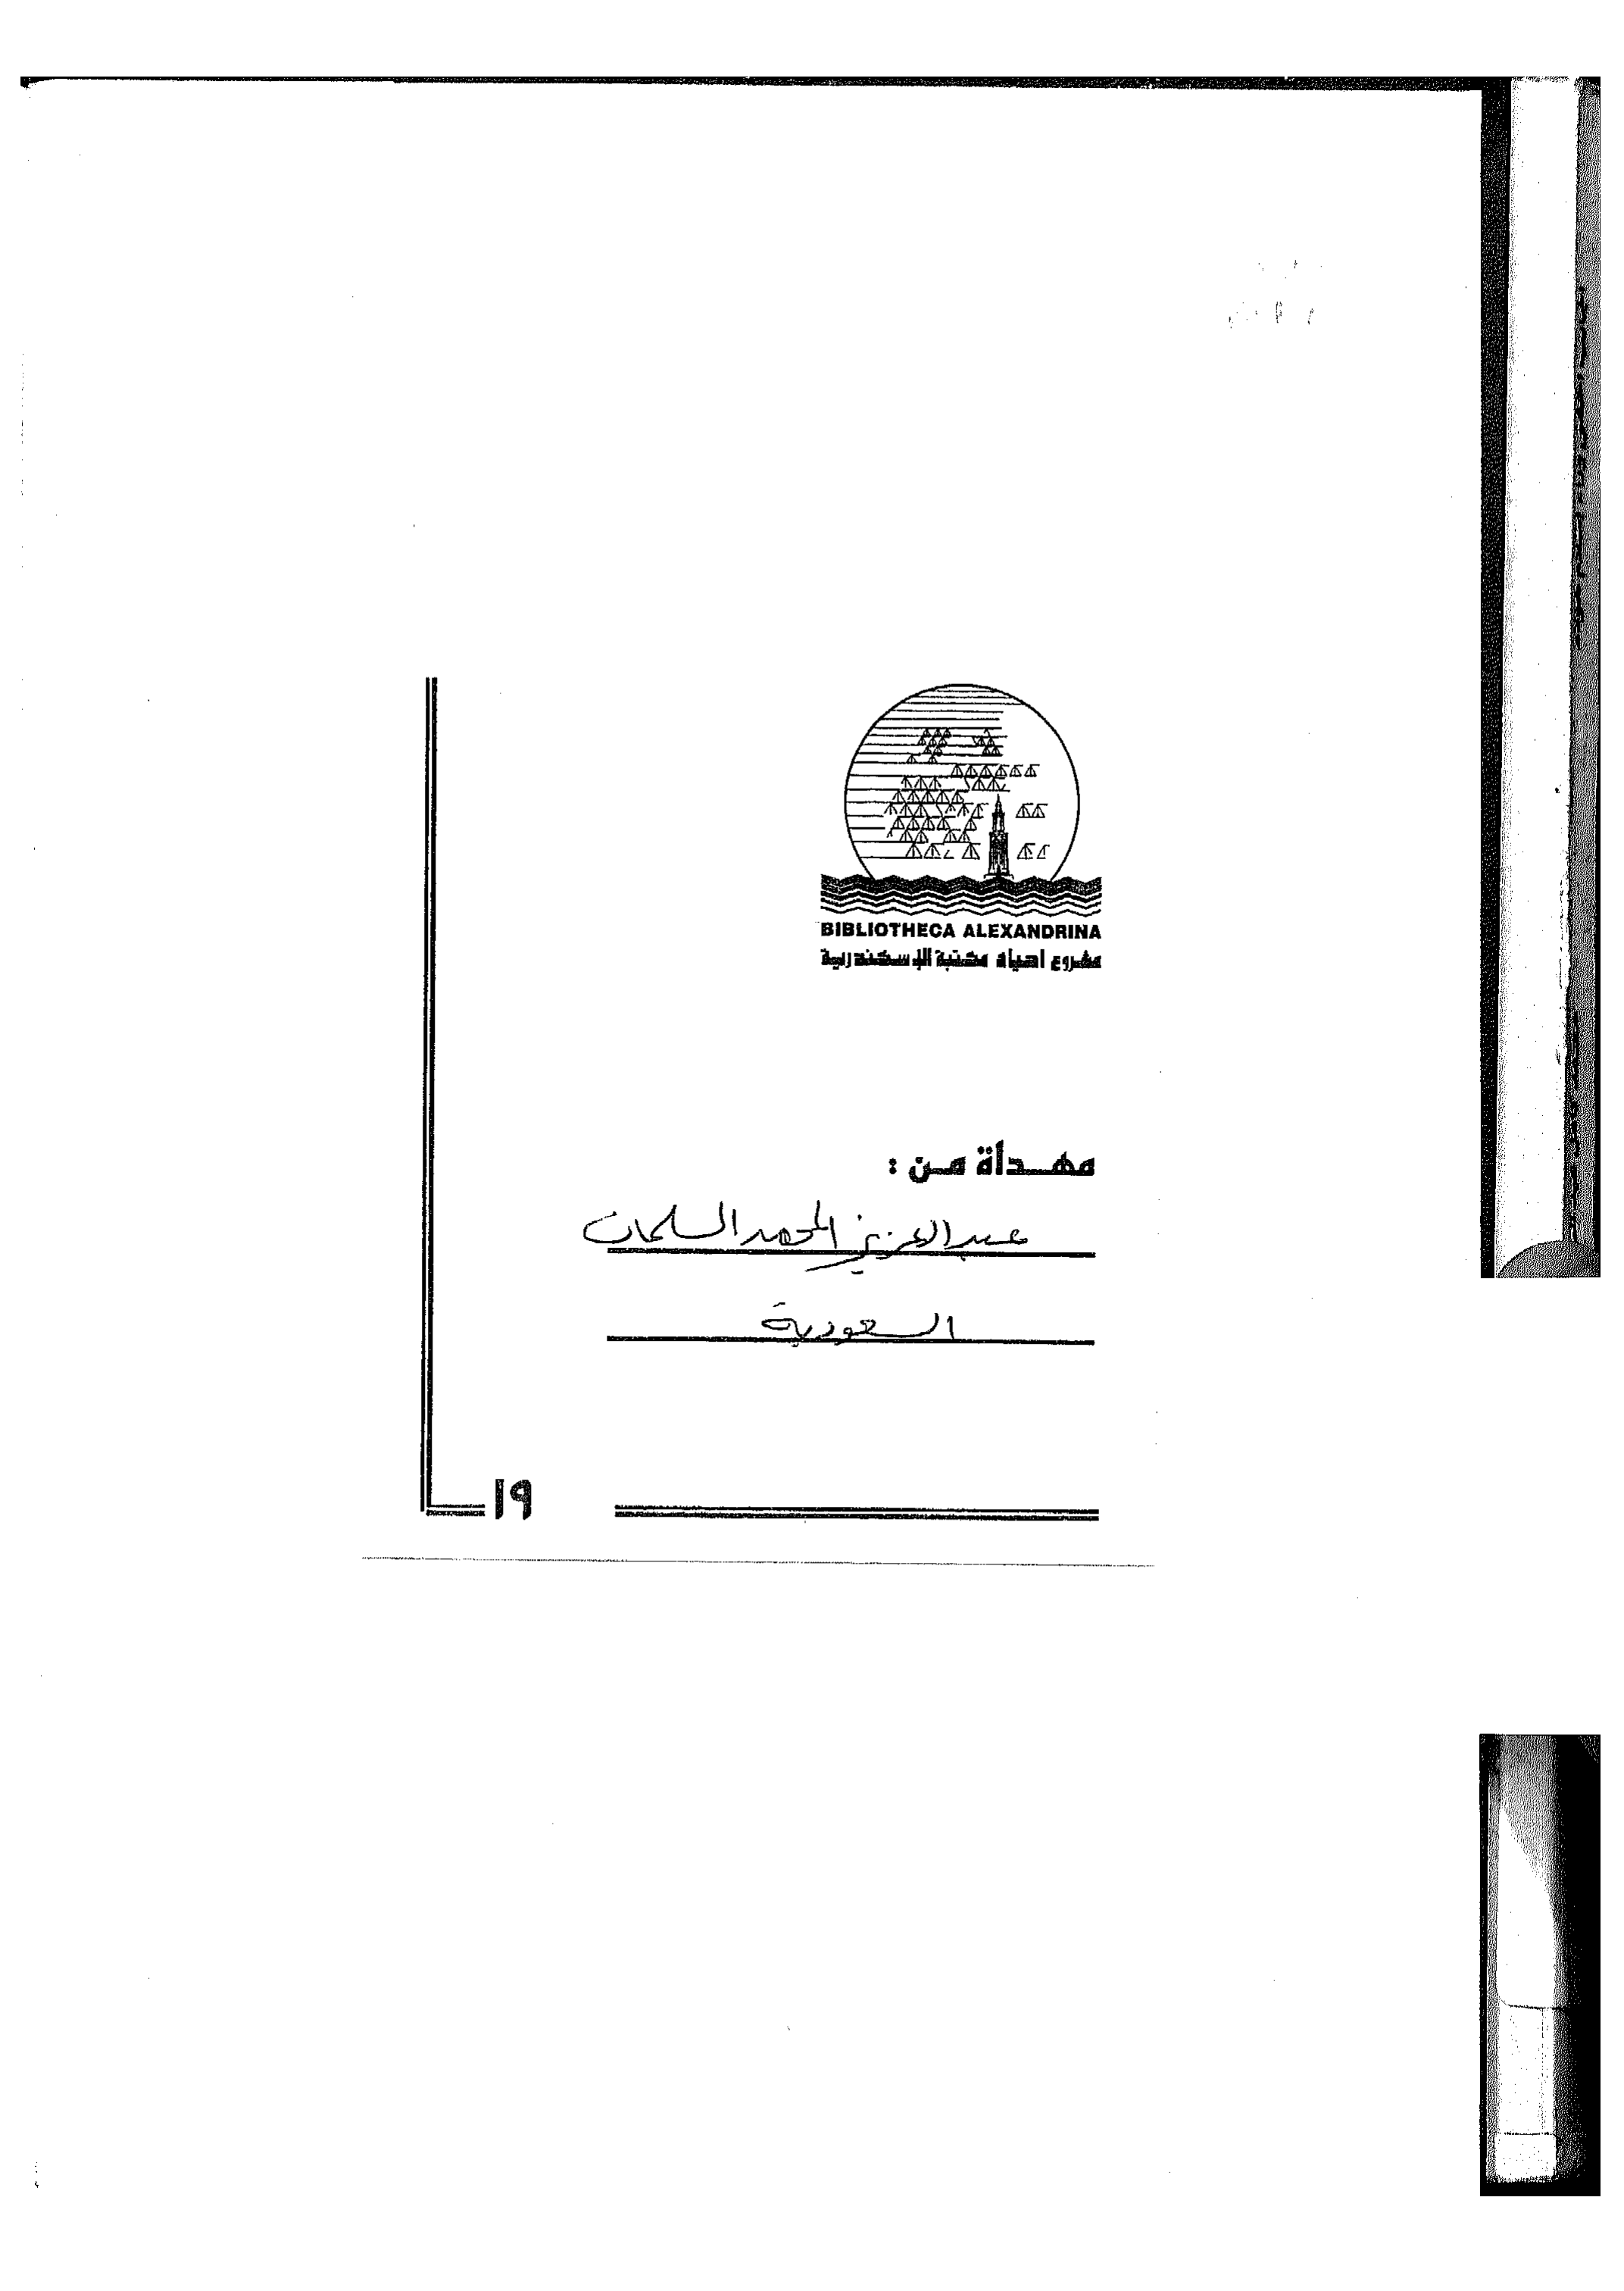 BIBLIOTHECA ALEXANDRINA
مشروع احياء مكتبة الإسكندرية
مهداة من :
عبد العزيز المحمد السلمان
السعودية
١٩